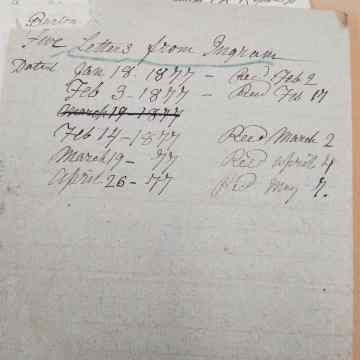 Five Letters from Ingram
Dated Jan 18. 1877 - Rec'd Feb 2
Feb 3 - 1877 - Rec'd Feb 17
March 19 - 1877
Feb 14 - 1877 Rec'd March 2
March 19 - 77 Rec'd April 4
April 26 - 77 Rec'd May 7.